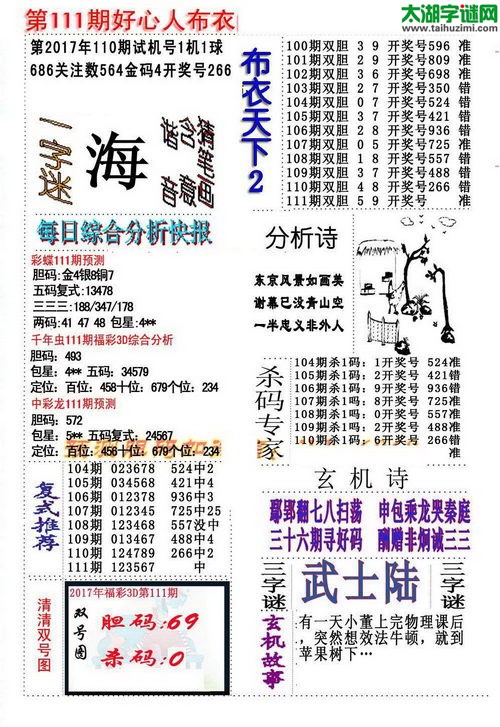 第111期好心人布衣
太湖字谜网
www.taihuzimi.com
第2017年110期试机号1机1球
686关注数564金码4开奖号266
一字迷
海
猜笔画
含意
谐音
布衣天下2
100期双胆 3 9 开奖号596 准
101期双胆 2 9 开奖号809 准
102期双胆 2 9 开奖号698 准
103期双胆 2 7 开奖号350 错
104期双胆 0 7 开奖号524 错
105期双胆 3 7 开奖号421 错
106期双胆 2 8 开奖号936 错
107期双胆 0 5 开奖号725 准
108期双胆 1 8 开奖号557 错
109期双胆 3 7 开奖号488 错
110期双胆 4 8 开奖号266 错
111期双胆 5 9 开奖号
每日综合分析快报
彩蝶111期预测
胆码:金4银8铜7
五码复式:13478
三三三:188/347/178
两码:41 47 48 包星:4**
千年虫111期福彩3D综合分析
胆码: 493
包星: 4** 五码: 34579
定位: 百位: 458十位: 679个位: 234
中彩龙111期预测
胆码: 572
包星: 5** 五码复式: 24567
定位: 百位: 456十位: 679个位: 234
分析诗
东京风景如画美
谢幕已没青山空
一半忠义非外人
杀码专家
104期杀1码: 1开奖号 524准
105期杀1码: 2开奖号 421错
106期杀1码: 9开奖号 936错
107期杀1吗: 8开奖号 725准
108期杀1吗: 0开奖号 557准
109期杀1吗: 2开奖号 488准
110期杀1码: 6开奖号 266错
111期杀1码: 0开奖号 准
复式推荐
104期 023678 524中2
105期 034568 421中4
106期 012367 936中3
107期 012345 725中25
108期 123468 557没中
109期 023468 488中4
110期 124789 266中2
111期 123567 中
玄机诗
鄢郢翻七八扫荡 申包乘龙哭秦庭
三十六期寻好码 酬赠非炯诚三三
清清双号图
2017年福彩3D第111期
双号图
胆码:69
杀码:0
三字谜
武士陆
三字谜
玄机故事
有一天小董上完物理课后
，突然想效法牛顿，就到
苹果树下…